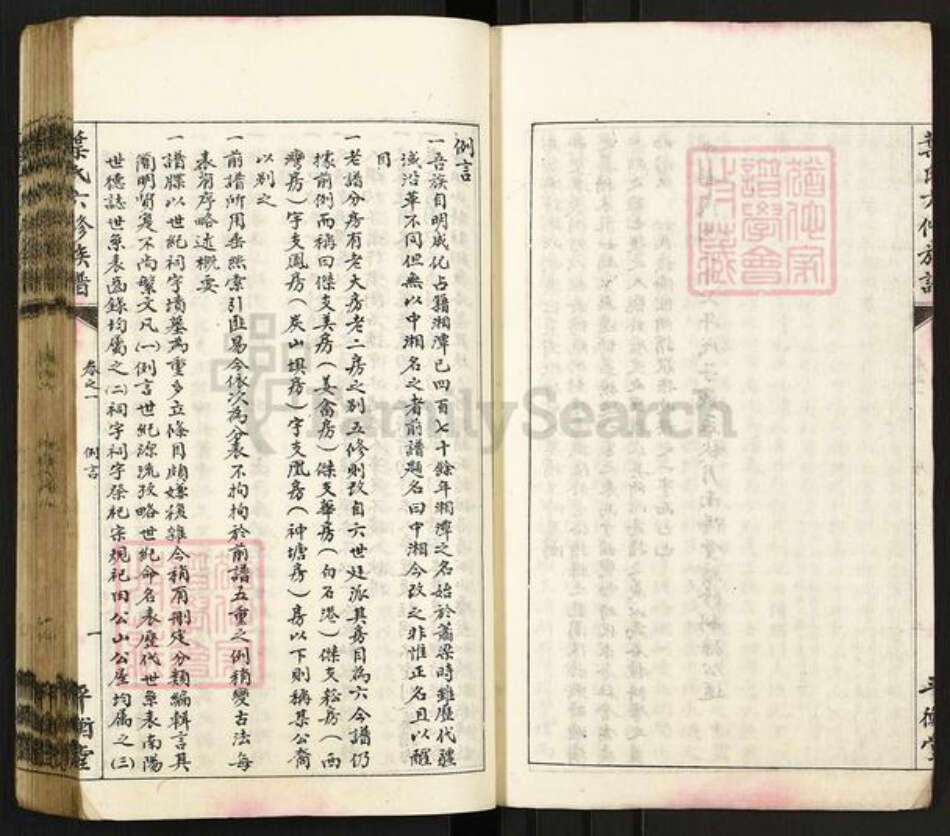 例言
一吾族自明成化占籍湘潭已四百七十餘年湘潭之名始於蕭梁時雖歷代疆
域沿革不同但無以中湘名之者前譜題名曰中湘今改之非惟正名且以醒
目
一老譜分房有老大房老二房之別五修則改自六世廷派其房目為六今譜仍
據前例而稱曰傑支美房(姜畬房)傑支舉房(白石港)傑支崧房(西
灣房)字支鳳房(炭山垻房)字支凰房(神塘房)房以下則稱某公裔
以別之
一前譜所用垂絲索引匪易今依次為分表不拘拘於前譜五重之例稍變古法每
表前序略述概要
一譜牒以世紀祠宇墳墓為重多立條目頗嫌複雜今稍有刪定分類編輯言其
簡明質是不尚繁文凡(一)例言世紀源流考略世紀命名表歷代世系表南陽
世德誌世系表齒錄均屬之(二)祠宇祠宇祭祀宗規祀田公山公屋均屬之(三)
葉氏六修族譜
卷之一
例言
一
平衡堂
FamilySearch